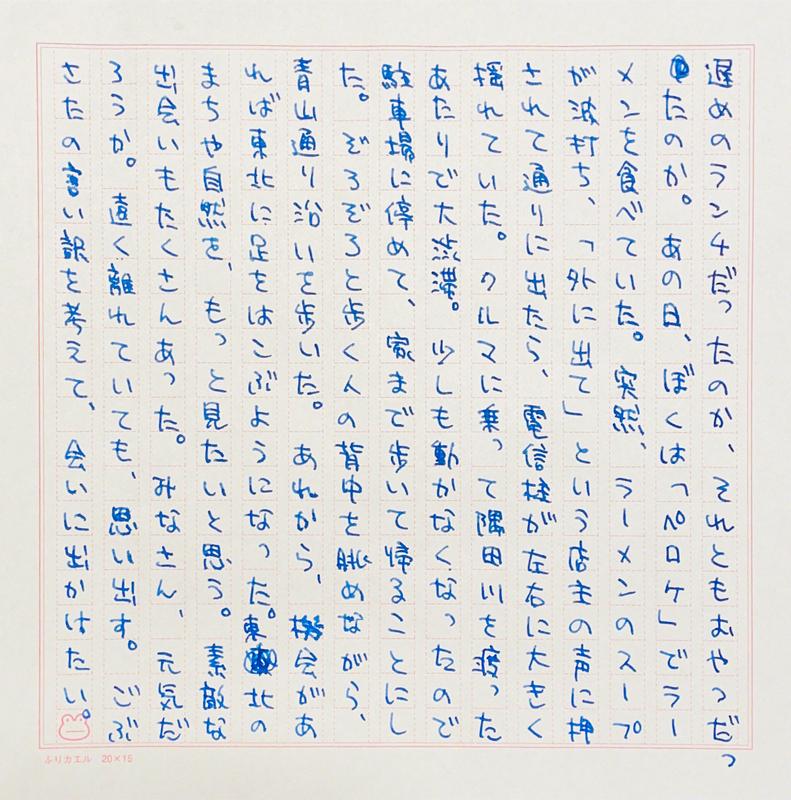 遅めのランチだったのか、それともおやつだっ
たのか。あの日、ぼくは「ペロケ」でラー
メンを食べていた。突然、ラーメンのスープ
が波打ち、「外に出て」という店主の声に押
されて通りに出たら、電信柱が左右に大きく
揺れていた。クルマに乗って隅田川を渡った
あたりで大渋滞。少しも動かなくなったので
駐車場に停めて、家まで歩いて帰ることにし
た。ぞろぞろと歩く人の背中を眺めながら、
青山通り沿いを歩いた。あれから、機会があ
れば東北に足をはこぶようになった。東北の
まちや自然を、もっと見たいと思う。素敵な
出会いもたくさんあった。みなさん、元気だ
ろうか。遠く離れていても、思い出す。ごぶ
さたの言い訳を考えて、会いに出かけたい。
ふりカエル 20×15